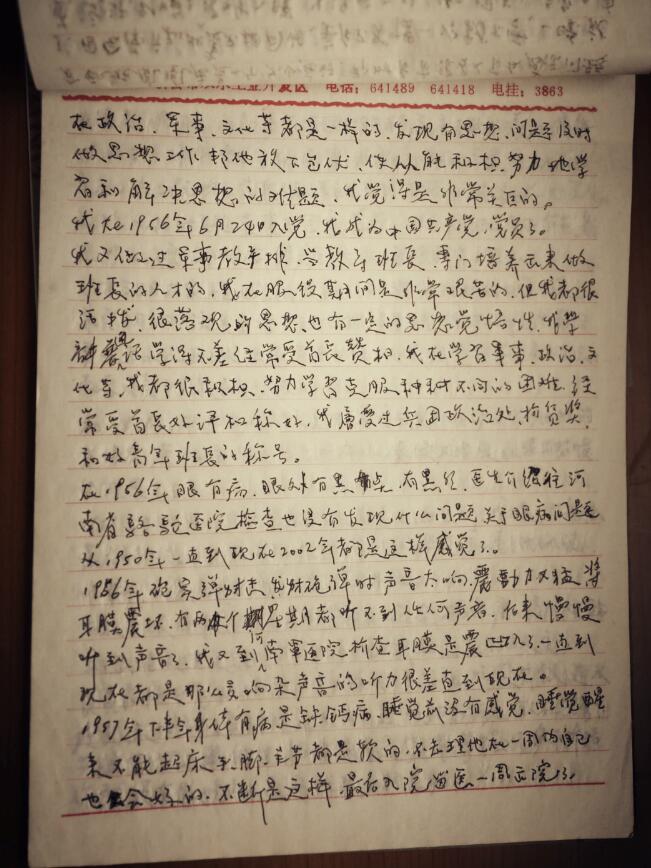 业开发区 电话：641489 641418 电挂：3863
在政治、军事、文化等都是一样的、发现有思想问题及时
做思想工作帮他放下包伏、使从能积极努力地学
习和解决思想的话题、我觉得是非常关巨的。
我在1956年6月24日入党、我成为中国共产党党员了。
我又做过军事教导排、当教导班长、专门培养出来做
班长的人才的、我在服役其间是非常艰苦的、但我都很
活拔、很落观的思想、也有一定的思想觉悟性、我学
学得不差经常受首长赞扬、我在学习军事、政治、文
化等、我都很积极、努力学习克服种种不同的困难、经
常受首长好评和称好、我屡受过兵团政治处、物质奖、
和好青年班长的称号。
在1956年眼有病、眼外有黑点、有黑丝、医生介绍往河
南省 医院检查也没有发现什么问题关于眼病问题
从1950年一直到现在2002年都是这样感觉了。
1956年炮实弹射击、发射炮弹时声音太响、震动力又猛将
耳膜震坏、有两个星期都听不到任何声音、后来慢慢
听到声音了、我又到河南军医院检查耳膜是震凹入了、一直到
现在都是那么 响杂声音的听力很差直到现在。
1957年下半年身体有病是缺钙病、睡觉前没有感觉、睡觉醒
来不能起床手、脚、关节都是软的、不去理他在一周内自己
也会好的、不断是这样、最后入院留医一周出院了、